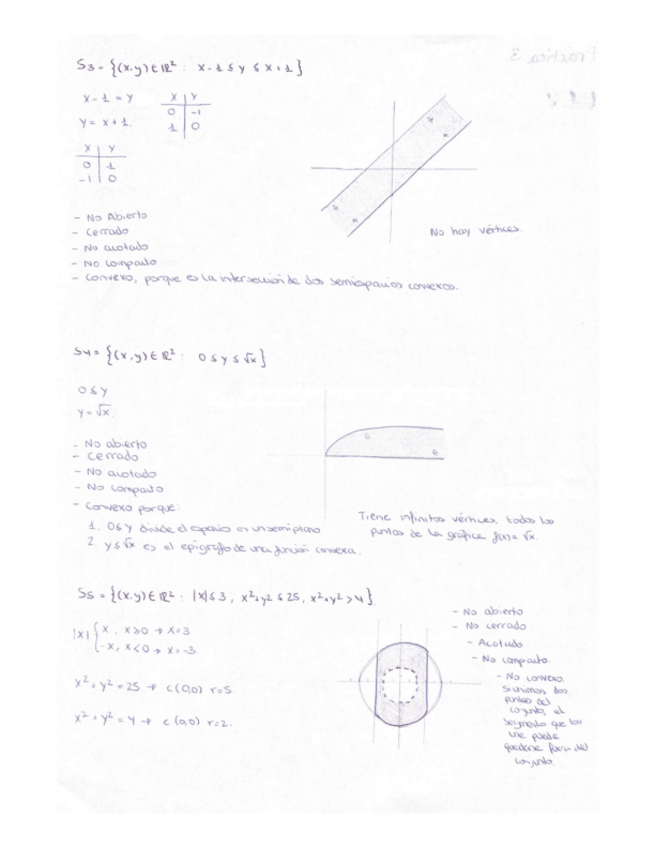 S3 = {(x,y) ∈ ℝ² : x-1 ≤ y ≤ x+1}
x-1 = y
y = x+1
x | y
0 | -1
1 | 0
x | y
0 | 1
-1 | 0
- No Abierto
- Cerrado
- No acotado
- No compacto
- Convexo, porque es la intersección de dos semiespacios convexos.
No hay vértices.
S4 = {(x,y) ∈ ℝ² : 0 ≤ y ≤ √x}
0 ≤ y
y = √x.
- No abierto
- Cerrado
- No acotado
- No compacto
- Convexo porque:
1. 0 ≤ y divide el espacio en un semiplano
2. y ≤ √x es el epigrafo de una función convexa.
Tiene infinitos vértices, todos los
puntos de la gráfica f(x) = √x.
S5 = {(x,y) ∈ ℝ² : |x| ≤ 3, x²+y² ≤ 25, x²+y² > 4}
|x| { x, x ≥ 0 → x = 3
-x, x < 0 → x = -3
x² + y² = 25 → c(0,0) r=5
x² + y² = 4 → c(0,0) r=2.
- No abierto
- No cerrado
- Acotado
- No compacto.
- No convexo.
Si unimos dos
puntos del
conjunto, el
segmento que los
une puede
quedarse fuera del
conjunto.